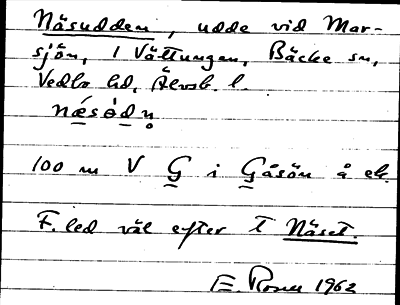 Näsudden, udde vid Mar-
sjön, i Vättungen, Bäcke sn,
Vedbo hd, Älvsb. l.
næ̀sèdn̥
100 m V G i Gåsön å ek.
F. led väl efter t Näset.
E. Rosner 1962